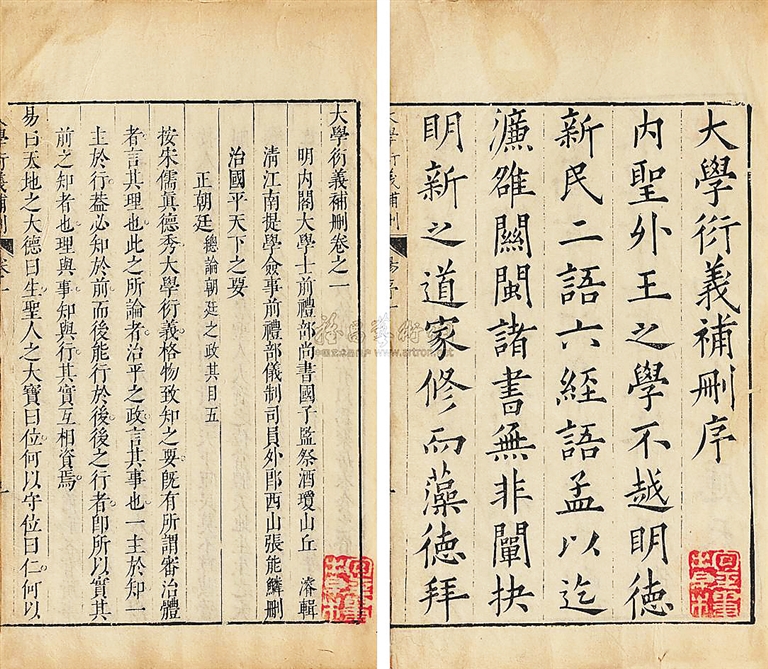 大學衍義補刪序
內聖外王之學不越明德
新民二語六經語孟以迄
濂雒關閩諸書無非闡抉
明新之道家修而藻德拜
大學衍義補刪卷之一
明內閣大學士前禮部尚書國子監祭酒瓊山丘濬輯
清江南提學僉事前禮部儀制司員外郎西山張能鱗刪
治國平天下之要
正朝廷 總論朝廷之政其目五
按宋儒真德秀大學衍義格物致知之要既有所謂審治體
者言其理也此之所論者治平之政言其事也一主於知一
主於行蓋必知於前而後能行於後後之行者即所以實其
前之知者也理與事知與行其實互相資焉
易曰天地之大德曰生聖人之大寶曰位何以守位曰仁何以